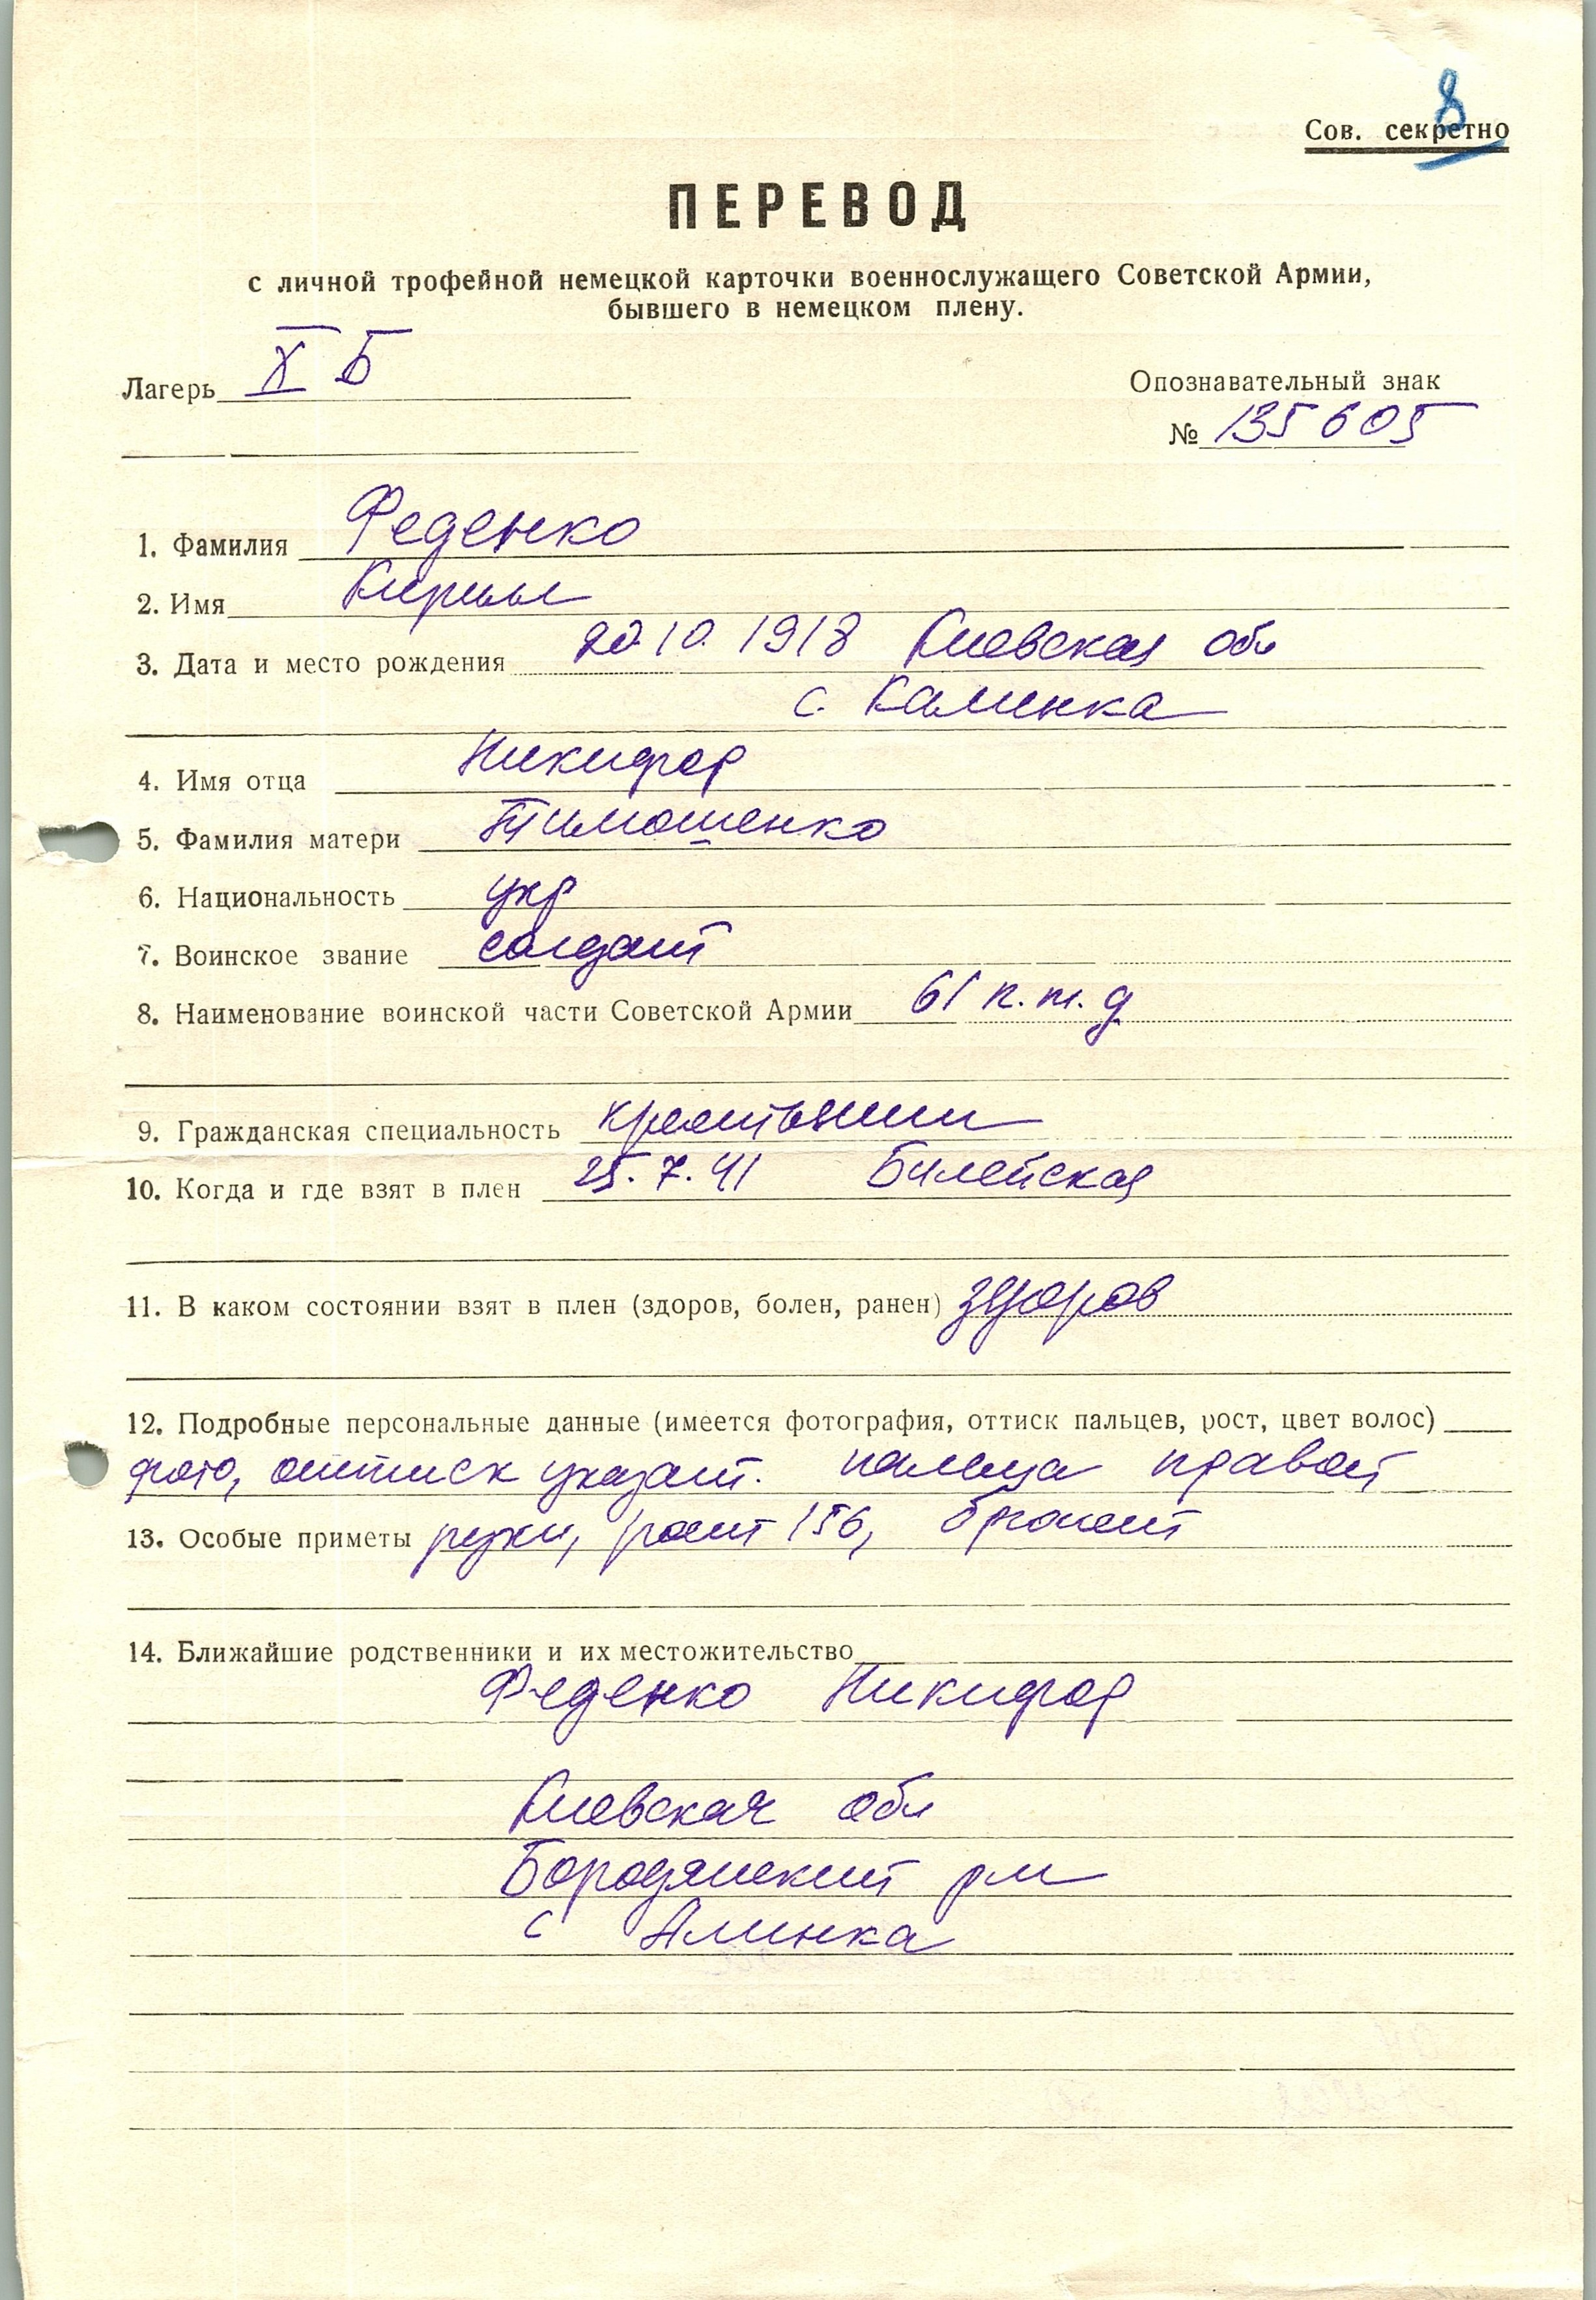 8
Сов. секретно
ПЕРЕВОД
с личной трофейной немецкой карточки военнослужащего Советской Армии,
бывшего в немецком плену.
Лагерь X Б
Опознавательный знак
№ 135605
1. Фамилия Феденко
2. Имя Кирилл
3. Дата и место рождения 20.10.1918 Киевская обл
с. Калинка
4. Имя отца Никифор
5. Фамилия матери Тимошенко
6. Национальность укр
7. Воинское звание солдат
8. Наименование воинской части Советской Армии 61 п.т.д
9. Гражданская специальность крестьянин
10. Когда и где взят в плен 25.7.41 Билейская
11. В каком состоянии взят в плен (здоров, болен, ранен) здоров
12. Подробные персональные данные (имеется фотография, оттиск пальцев, рост, цвет волос)
фото, оттиск указат. пальца правой
13. Особые приметы руки, рост 156, брюнет
14. Ближайшие родственники и их местожительство
Феденко Никифор
Киевская обл
Бородянский рн
с Алинка